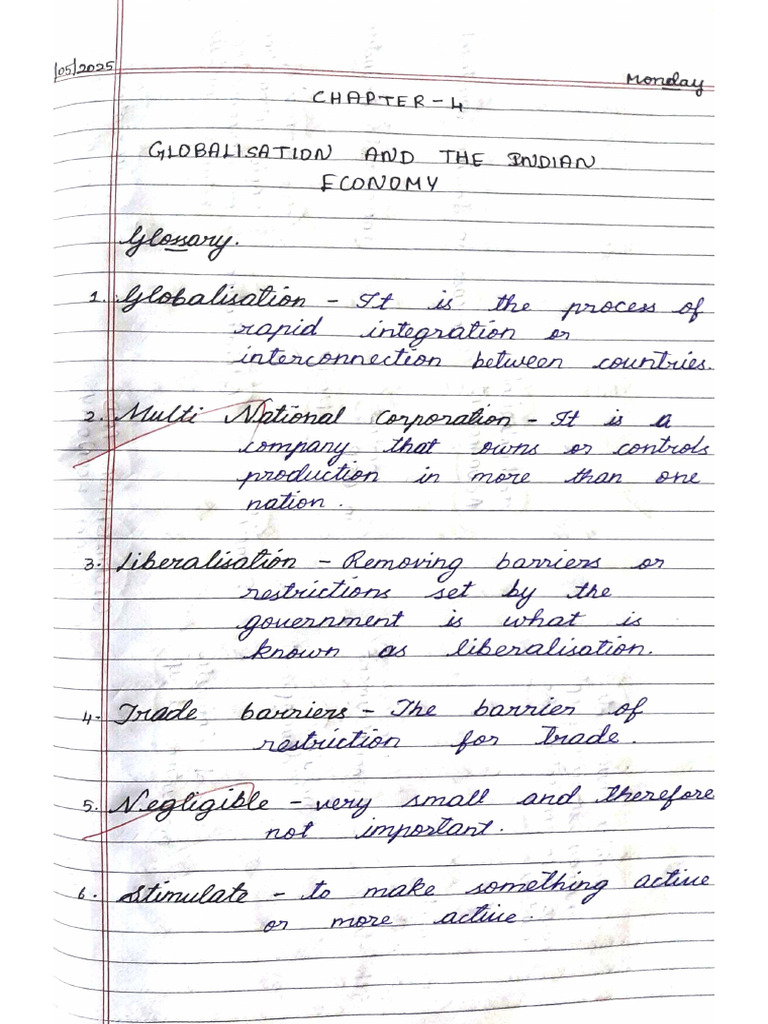 /05/2025
Monday
CHAPTER-4
GLOBALISATION AND THE INDIAN
ECONOMY
Glossary.
1. Globalisation - It is the process of
rapid integration or
interconnection between countries.
2. Multi National Corporation - It is a
company that owns or controls
production in more than one
nation.
3. Liberalisation - Removing barriers or
restrictions set by the
government is what is
known as liberalisation.
4. Trade barriers - The barrier of
restriction for trade.
5. Negligible - very small and therefore
not important.
6. Stimulate - to make something active
or more active.